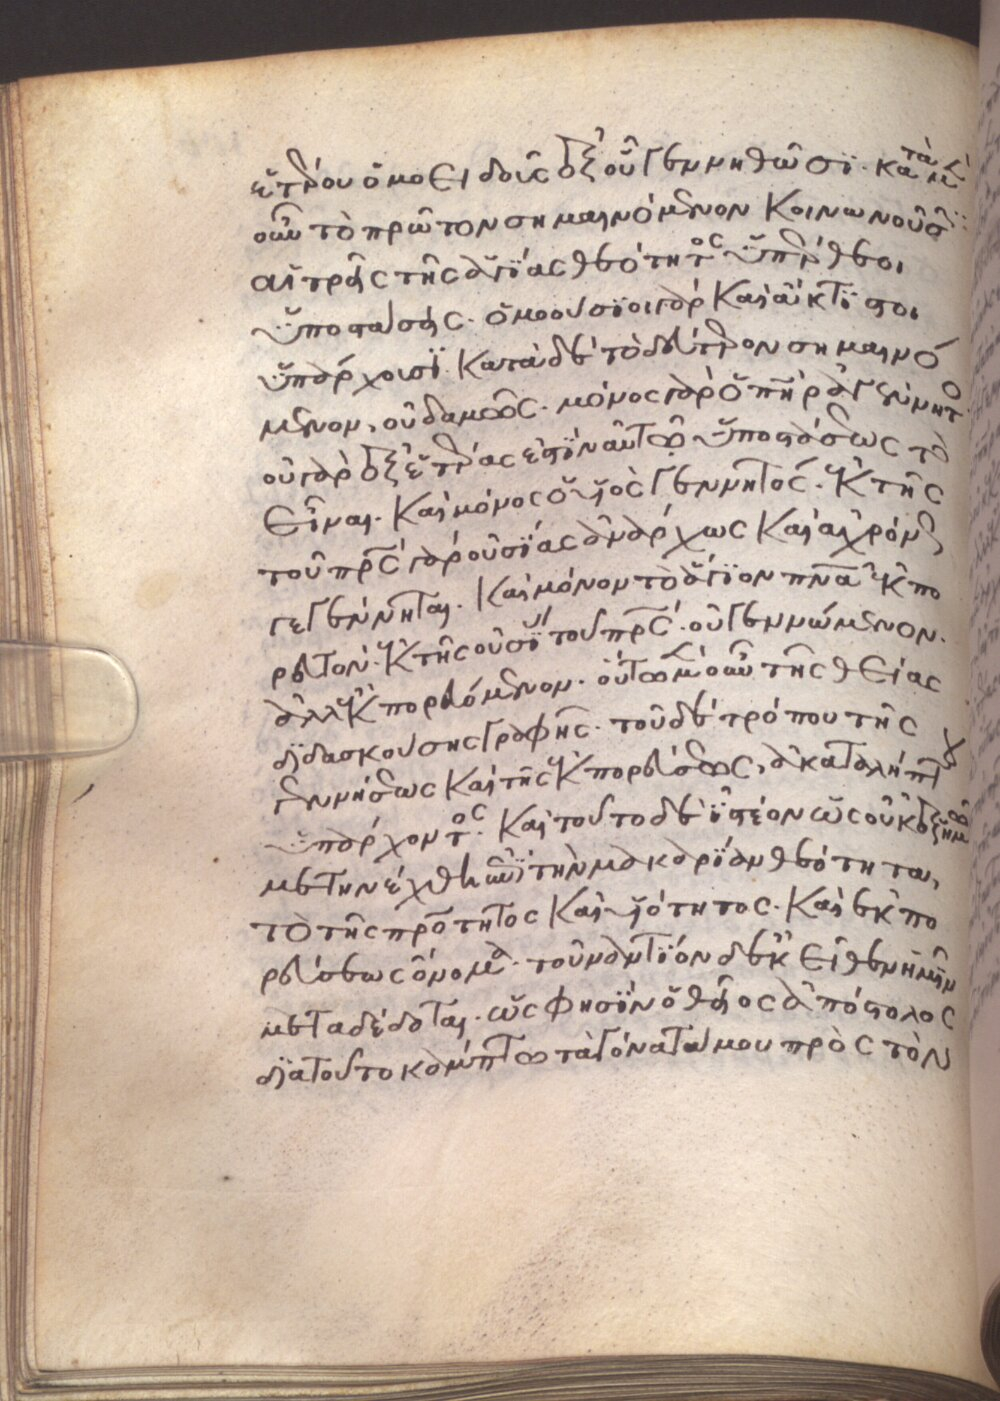 ἑτέρου ὁμοειδοῦς ἐξ οὗ γεννηθῶσι. κατὰ μὲν
οὖν τὸ πρῶτον σημαινόμενον κοινωνοῦσιν
αἱ τρεῖς τῆς ἁγίας θεότητος ὑπέρθεοι
ὑποστάσεις. ὁμοούσιοι γὰρ καὶ ἄκτιστοι
ὑπάρχουσι. κατὰ δὲ τὸ δεύτερον σημαινό
μενον, οὐδαμῶς. μόνος γὰρ ὁ πατὴρ ἀγέννητος
οὐ γὰρ ἐξ ἑτέρας ἐστὶν αὐτῷ ὑποστάσεως τὸ
εἶναι. καὶ μόνος ὁ υἱὸς γεννητός. ἐκ τῆς
τοῦ πατρὸς γὰρ οὐσίας ἀνάρχως καὶ ἀχρόνως
γεγέννηται. καὶ μόνον τὸ ἅγιον πνεῦμα ἐκπο
ρευτόν. ἐκ τῆς οὐσίας τοῦ πατρὸς. οὐ γεννώμενον.
ἀλλ' ἐκπορευόμενον. οὕτω μὲν οὖν τῆς θείας
διδασκούσης γραφῆς. τοῦ δὲ τρόπου τῆς γεν
νήσεως καὶ τῆς ἐκπορεύσεως, ἀκαταλήπτου
ὑπάρχοντος. καὶ τοῦτο δὲ ἰστέον ὡς οὐκ ἐξ ἡμῶν
μετηνέχθη ἐπὶ τὴν μακαρίαν θεότητα,
τὸ τῆς πατρότητος καὶ υἱότητος. καὶ ἐκπο
ρεύσεως ὄνομα. τοὐναντίον δὲ ἐκεῖθεν ἡμῖν
μεταδέδοται. ὥς φησὶν ὁ θεῖος ἀπόστολος
διὰ τοῦτο κάμπτω τὰ γόνατά μου πρὸς τὸν